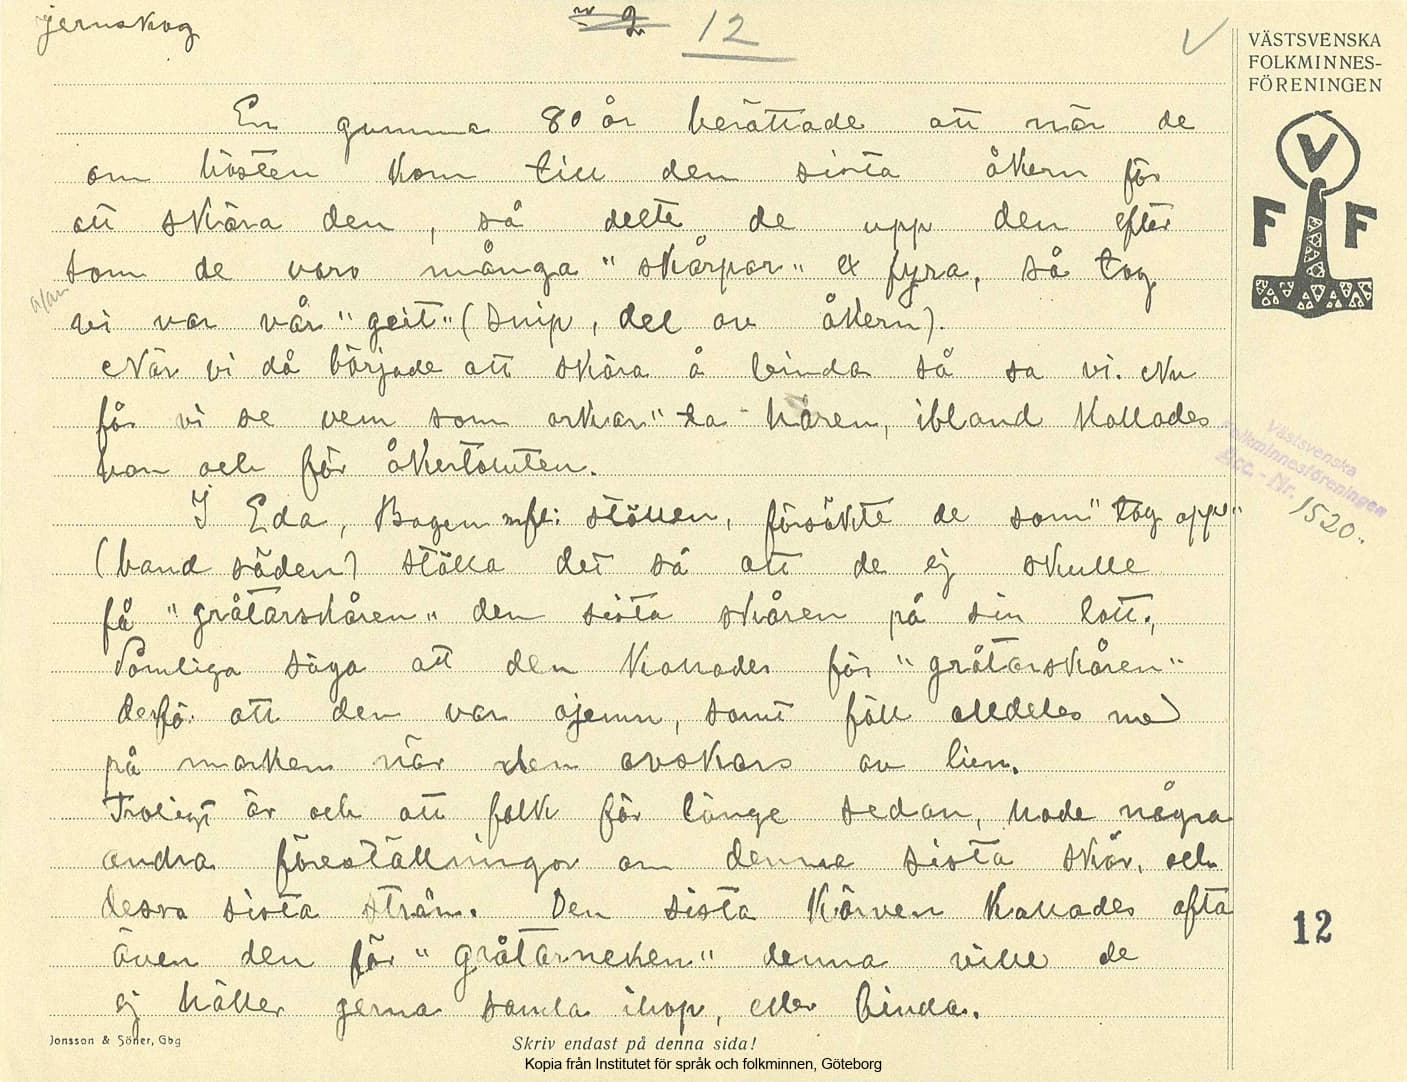 jernskog
12
VÄSTSVENSKA
FOLKMINNES-
FÖRENINGEN
V
F F
En gumma 80 år berättade att när de
om hösten kom till den sista åkern för
att skära den, så delte de upp den efter
som de voro många "skärpar" ex fyra, så tog
vi var vår "geit" (snip, del av åkern).
När vi då började att skära å binda så sa vi. Nu
får vi se vem som orkar "ta håren, ibland kallades
han och för åkertomten.
I Eda, Bogen mfl: ställen, försökte de som "tog opp"
(band säden) ställa det så att de ej skulle
få "gråtarskåren" den sista skåren på sin lott.,
Somliga säga att den kallades för "gråtarskåren"
derför att den var ojemn, samt föll alldeles ned
på marken när den avskars av lien.
Troligt är och att folk för länge sedan, hade några
andra föreställningar om denna sista skår, och
dessa sista strån. Den sista kärven kallades ofta
även den för "gråtarneken" denna ville de
ej häller gerna samla ihop, eller binda.
Västsvenska
Folkminnesföreningen
Acc.-Nr. 1520.
12
Jonsson & Söner, Gbg
Skriv endast på denna sida!
Kopia från Institutet för språk och folkminnen, Göteborg